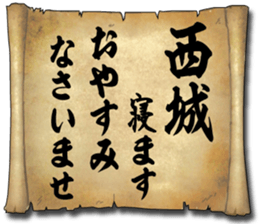 西城
寝ます
おやすみ
なさいませ